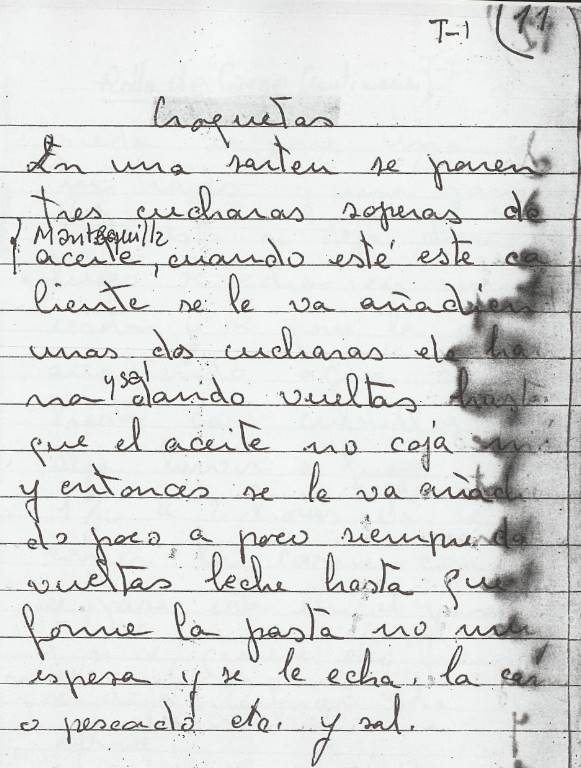 T-1 (11
Croquetas
En una sarten se ponen
tres cucharas soperas de
Mantequilla
aceite, cuando esté este ca
liente se le va añadien
unas dos cucharas de ha
y sal
na dando vueltas hasta
que el aceite no coja
y entonces se le va añadi
do poco a poco siempre da
vueltas leche hasta que
forme la pasta no mu
espesa y se le echa. la car
o pescado etc. y sal.